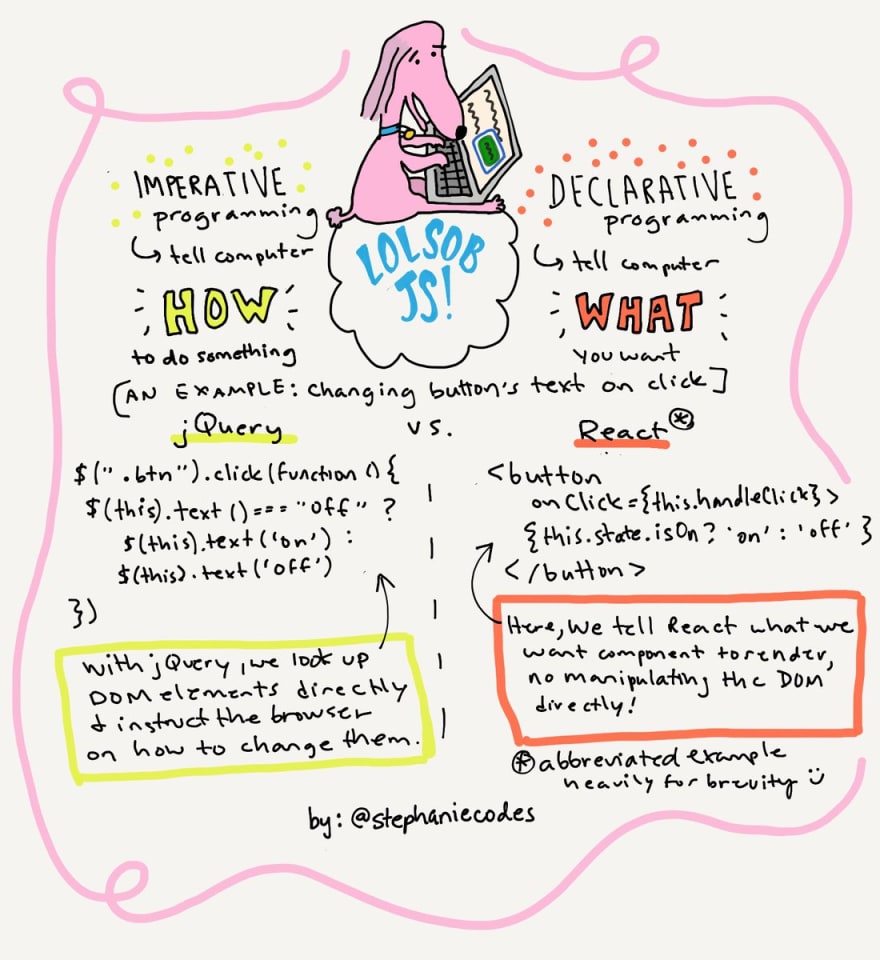 LOLSOB
JS!
IMPERATIVE
programming
↳ tell computer
HOW
to do something
DECLARATIVE
programming
↳ tell computer
WHAT
you want
[AN EXAMPLE: changing button's text on click]
jQuery
vs.
React*
$(".btn").click(function () {
$(this).text()==="off" ?
$(this).text('on') :
$(this).text('off')
})
with jQuery, we look up
DOM elements directly
& instruct the browser
on how to change them.
<button
onClick={this.handleClick}>
{this.state.isOn? 'on' : 'off' }
</button>
Here, we tell React what we
want component to render,
no manipulating the DOM
directly!
* abbreviated example
heavily for brevity
by: @stephaniecodes